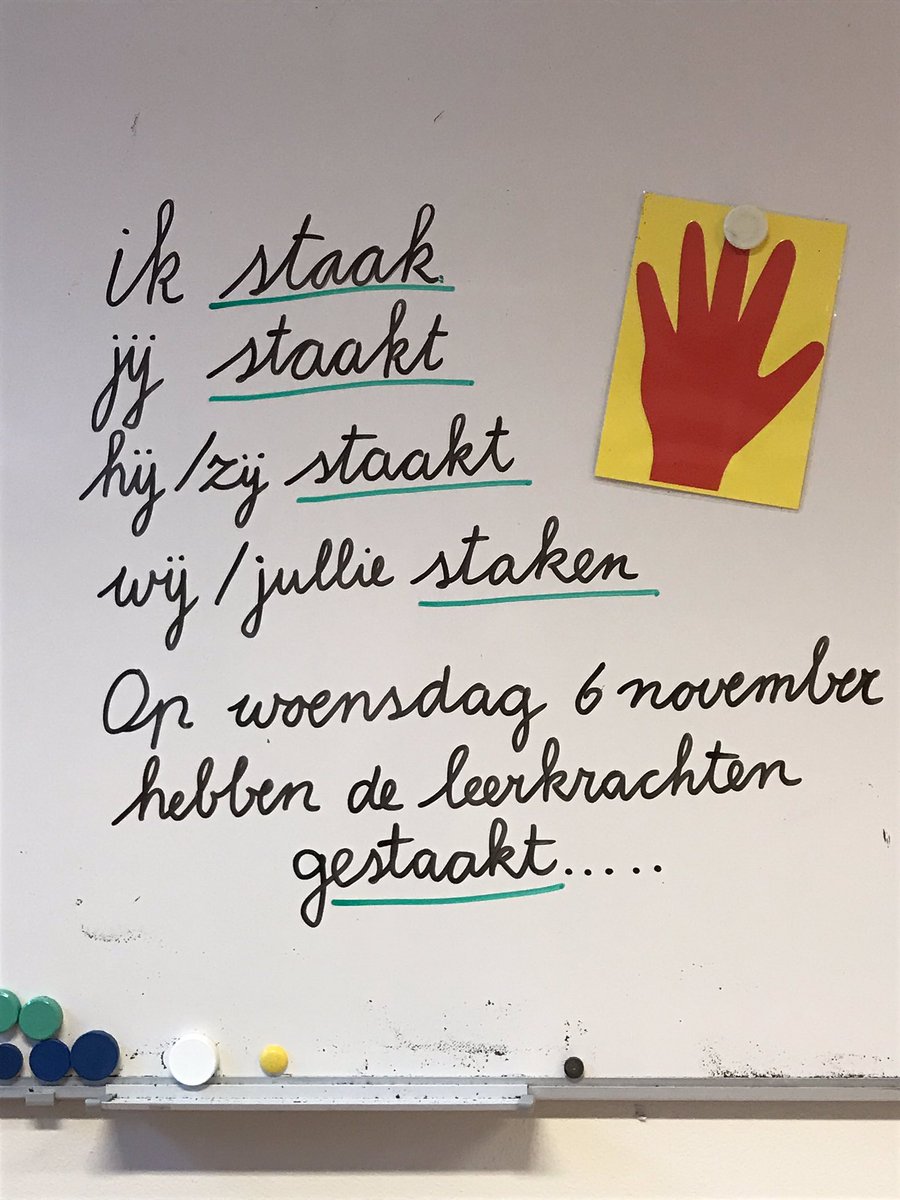 ik staak
jij staakt
hij/zij staakt
wij/jullie staken
Op woensdag 6 november
hebben de leerkrachten
gestaakt.....